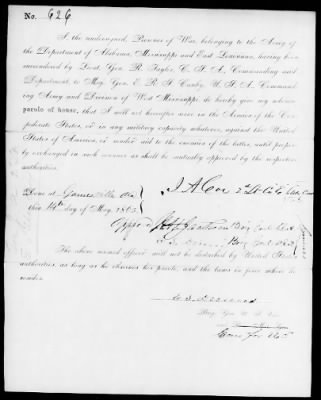 No. 626
I the undersigned, Prisoner of War, belonging to the Army of
the Department of Alabama, Mississippi and East Louisiana, having been
surrendered by Lieut. Gen. R. Taylor, C. S. A., Commanding said
Department, to Maj. Gen. E. R. S. Canby, U. S. A., Command-
ing Army and Division of West Mississippi, do hereby give my solemn
parole of honor, that I will not hereafter serve in the Armies of the Con-
federate States, or in any military capacity whatever, against the United
States of America, or render aid to the enemies of the latter, until proper-
ly exchanged in such manner as shall be mutually approved by the respective
authorities.
Done at Gainesville Ala
this 14th day of May, 1865.
J A Cox 2d Lt
Approved Jackson Brig Gen
Brig Gen
The above named officer will not be disturbed by United States
authorities, as long as he observes his parole, and the laws in force where he
resides.
Brig. Gen. U. S.
Com for U.S.